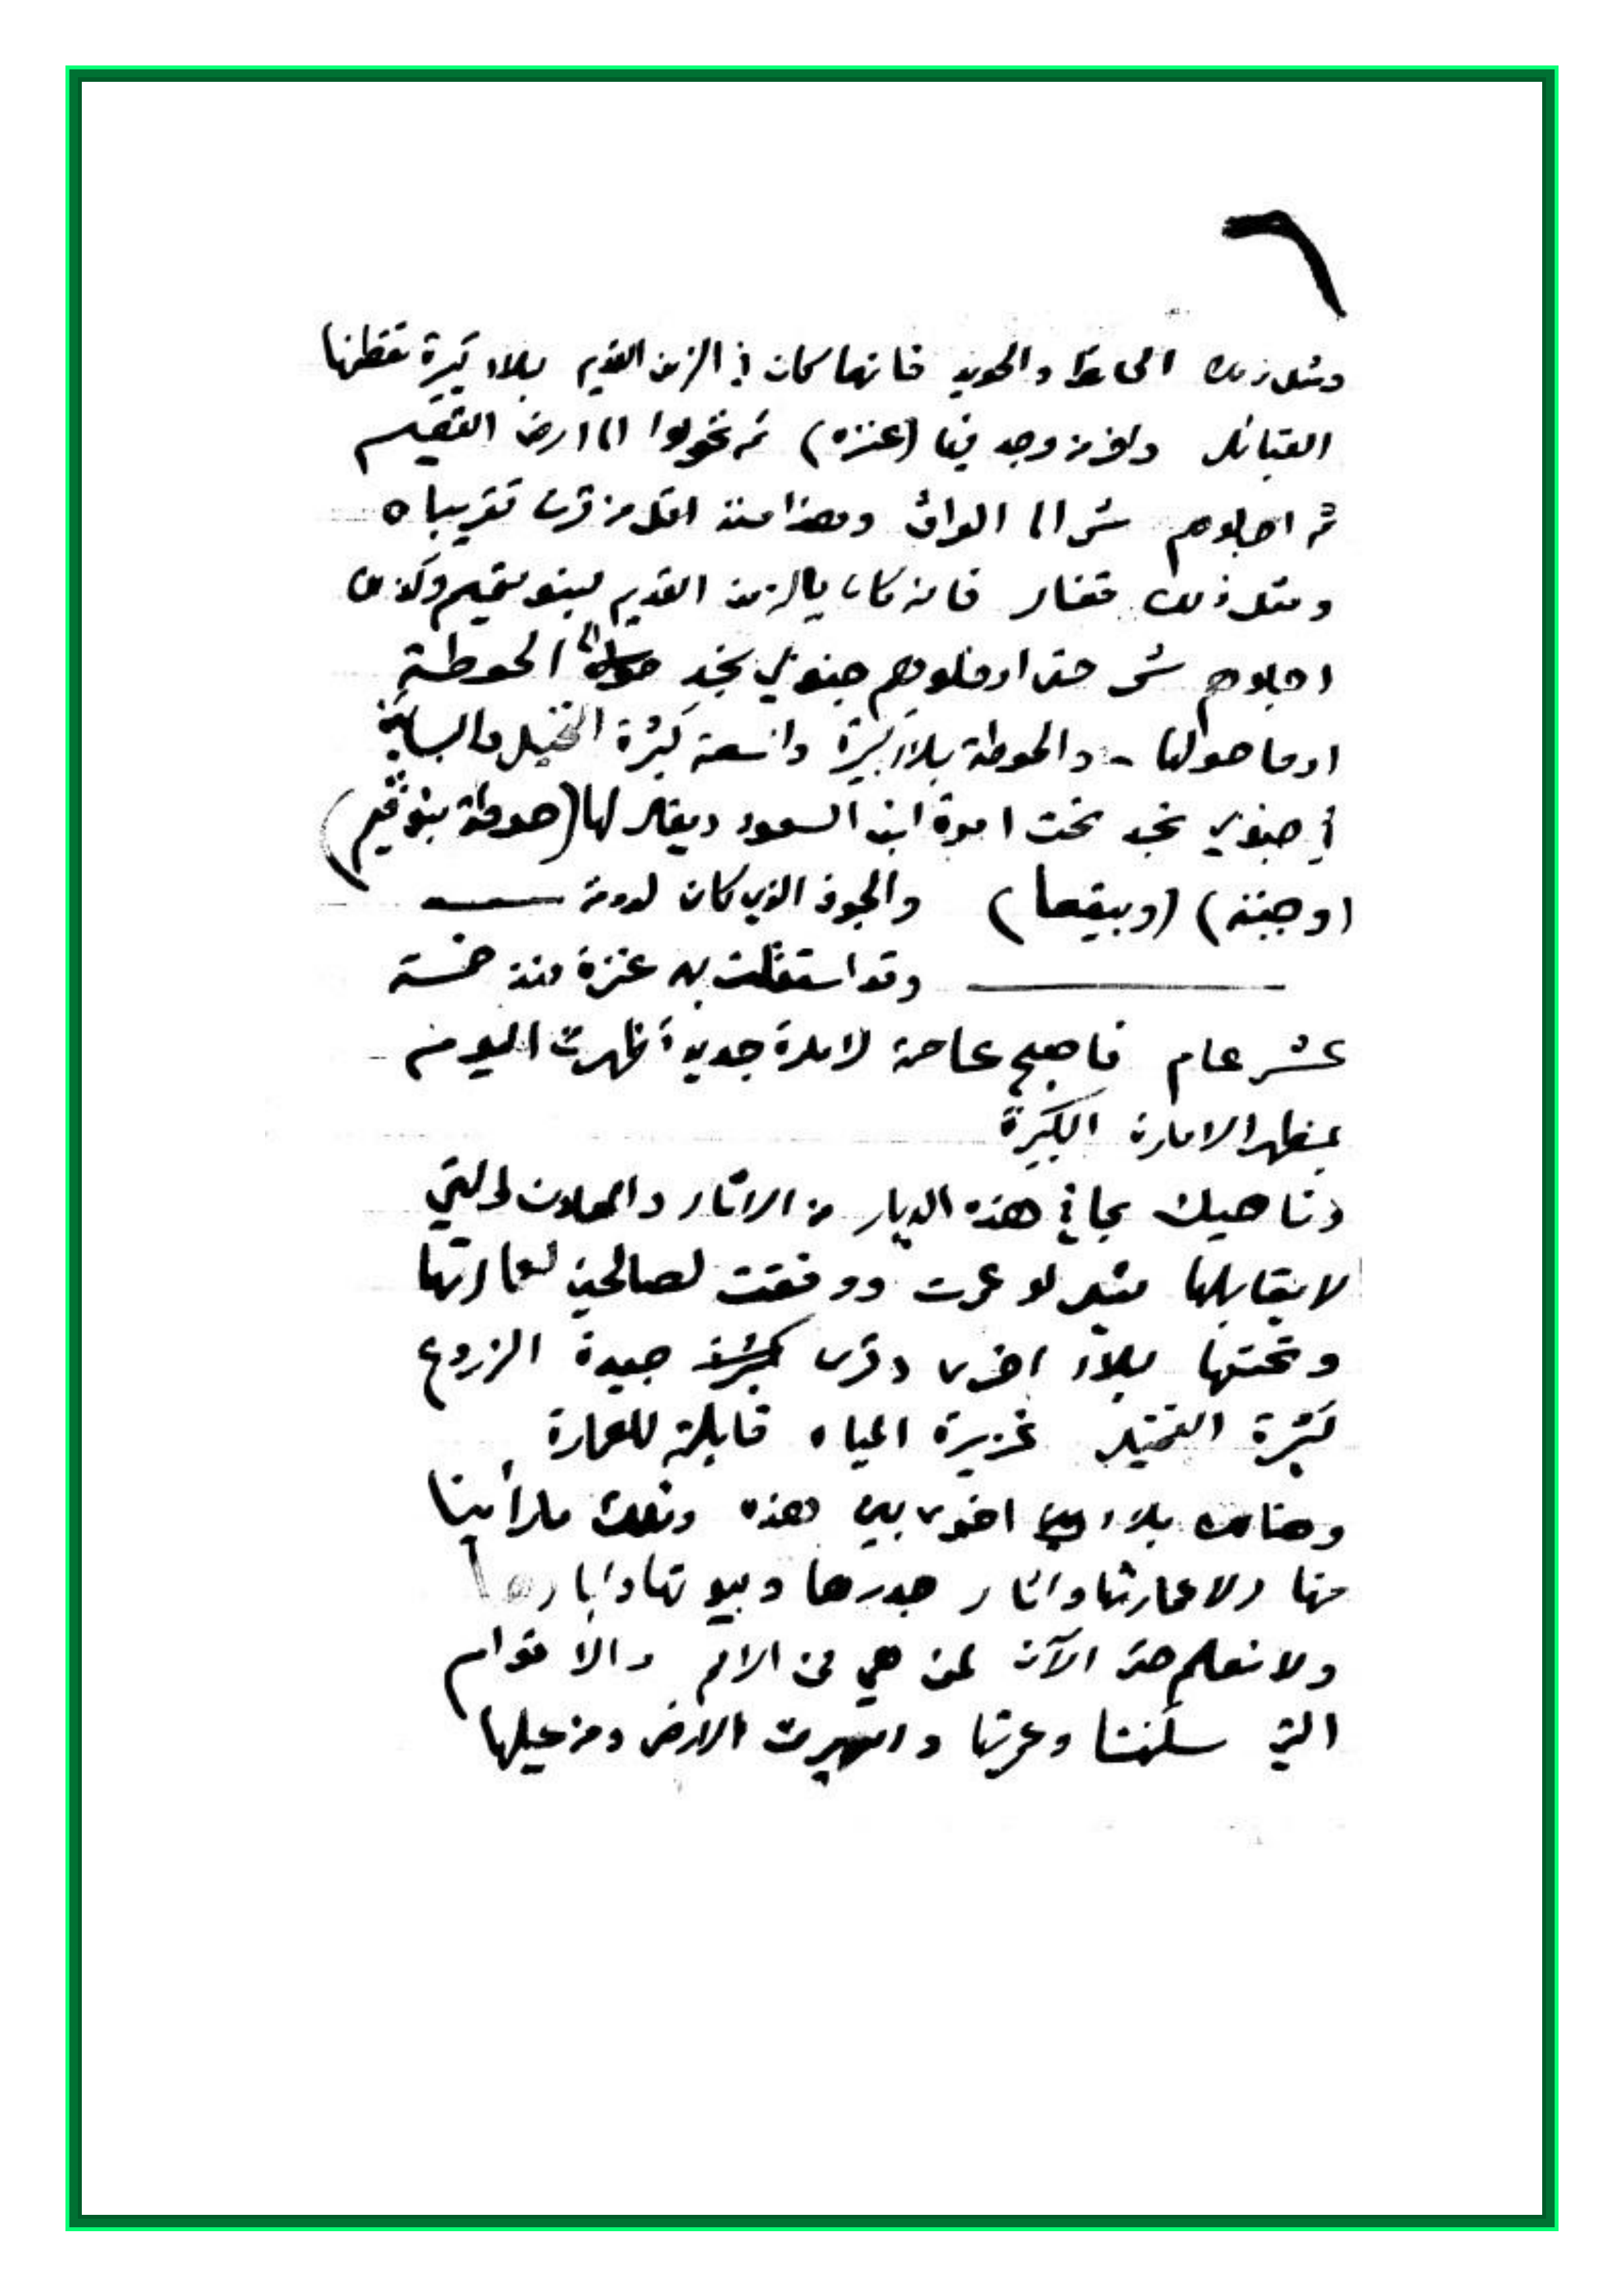 ٦
ومثل ذلك الحائط والحويط فانهما كان في الزمن القديم بلاد كبيرة تقطنها
القبائل واخر من وجد فيها (عنزه) ثم تحولوا الى ارض القصيم
ثم اجلوهم شمر الى العراق وهذا منذ اقل من قرن تقريبا ه
ومثل ذلك قفار فانه كان بالزمن القديم لبنو تميم وكذلك
اجلوهم شمر حتى ادخلوهم جنوبي نجد الى الحوطة
او ما حولها - والحوطة بلاد كبيرة واسعة كثرة النخيل والبساتين
في جنوبي نجد تحت امرة ابن السعود ويقال لها (حوطة بنو تميم)
(وجبة) (وبيقعا) والجوف الذي كان لدومة
وقد استقلت به عنزة منذ خمسة
عشر عام فاصبح عاصمة لامارة جديدة ظهرت اليوم
بمظهر الامارة الكبيرة
وناهيك بما في هذه الديار من الاثار والمعادن والتي
لا يقابلها مثيل لو عمرت ووفقت لصالحين لعمارتها
وتحتها بلاد اخرى وقرى جيدة الزروع
كثيرة النخيل غزيرة المياه قابلة للعمارة
وهناك بلاد اخرى بين هذه وتلك ما رأينا
منها الا عمارتها واثار جدرها وبيوتها وابارها
ولا نعلم حتى الآن لمن هي من الامم والاقوام
التي سكنتها وعمرتها الارض ومن عليها